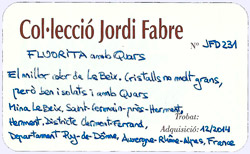 Col·lecció Jordi Fabre
Nº JFD231
FLUORITA amb Quars
El millor color de Le Beix. Cristalls no molt grans,
però ben isolats i amb Quars
Mina Le Beix, Saint-Germain-près-Herment,
Herment, Districte Clermont-Ferrand,
Departament Puy-de-Dôme, Auvergne-Rhône-Alpes, France
Trobat:
Adquisició: 12/2014